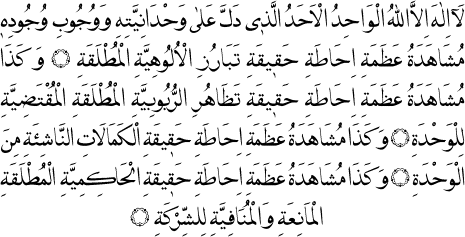 لَٓا اِلٰهَ اِلَّا اللّٰهُ الْوَاحِدُ الْاَحَدُ الَّذ۪ى دَلَّ عَلٰى وَحْدَانِيَّتِهِ وَوُجُوبِ وُجُودِهِ
مُشَاهَدَةُ عَظَمَةِ اِحَاطَةِ حَق۪يقَةِ تَبَارُزِ الْاُلُوهِيَّةِ الْمُطْلَقَةِ ۞ وَكَذَا
مُشَاهَدَةُ عَظَمَةِ اِحَاطَةِ حَق۪يقَةِ تَظَاهُرِ الرُّبُوبِيَّةِ الْمُطْلَقَةِ الْمُقْتَضِيَّةِ
لِلْوَحْدَةِ ۞ وَكَذَا مُشَاهَدَةُ عَظَمَةِ اِحَاطَةِ حَق۪يقَةِ الْكَمَالَاتِ النَّاشِئَةِ مِنَ
الْوَحْدَةِ ۞ وَكَذَا مُشَاهَدَةُ عَظَمَةِ اِحَاطَةِ حَق۪يقَةِ الْحَاكِمِيَّةِ الْمُطْلَقَةِ
الْمَانِعَةِ وَالْمُنَافِيَةِ لِلشِّرْكَةِ ۞